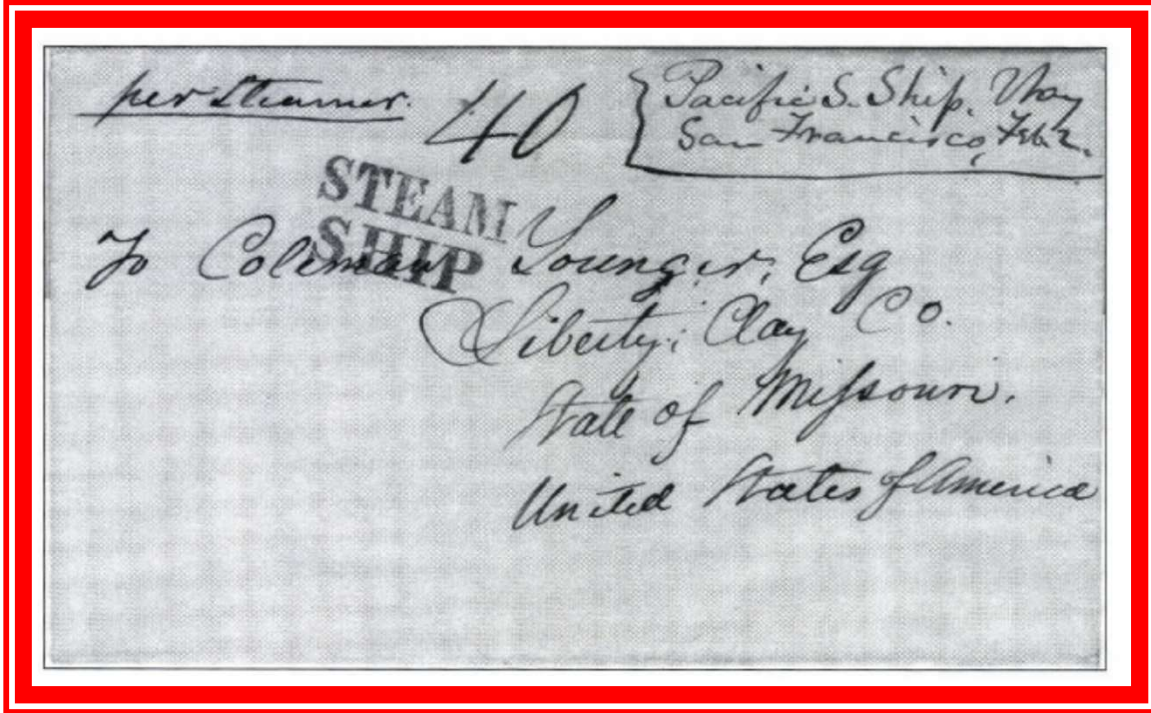 per Steamer.
40
Pacific S. Ship. Way
San Francisco, Feb. 2.
STEAM
SHIP
To Coleman Younger, Esq
Liberty; Clay Co.
State of Missouri.
United States of America